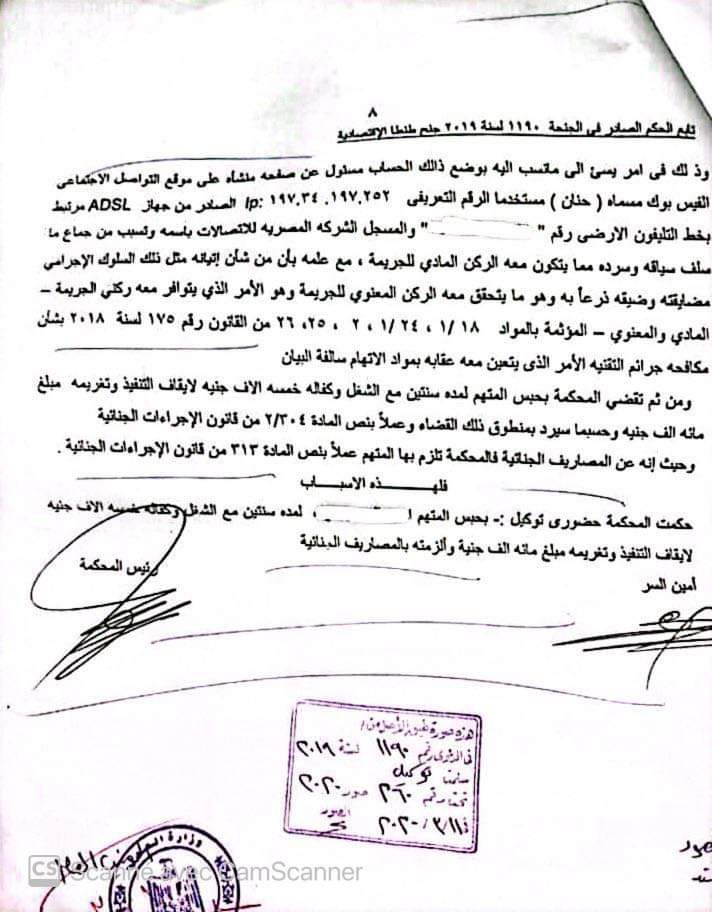 ٨
تابع الحكم الصادر فى الجنحة ١١٩٠ لسنة ٢٠١٩ جنح طنطا الإقتصادية
وذ لك فى امر يسئ الى مانسب اليه بوضع ذالك الحساب مسئول عن صفحه منشأه على موقع التواصل الاجتماعى
الفيس بوك مسماه ( حنان ) مستخدما الرقم التعريفى ١٩٧.٣٤. ١٩٧.٢٥٢ :Ip الصادر من جهاز ADSL مرتبط
بخط التليفون الارضى رقم " " والمسجل الشركه المصريه للاتصالات باسمه وتسبب من جماع ما
سلف سياقه وسرده مما يتكون معه الركن المادي للجريمة ، مع علمه بأن من شأن إتيانه مثل ذلك السلوك الإجرامي
مضايقته وضيقه ذرعاً به وهو ما يتحقق معه الركن المعنوي للجريمة وهو الأمر الذي يتوافر معه ركني الجريمة –
المادي والمعنوي – المؤثمة بالمواد ١/ ١٨ ، ١/ ٢٤ ، ٢ ، ٢٥، ٢٦ من القانون رقم ١٧٥ لسنة ٢٠١٨ بشأن
مكافحه جرائم التقنيه الأمر الذى يتعين معه عقابه بمواد الاتهام سالفة البيان
ومن ثم تقضي المحكمة بحبس المتهم لمده سنتين مع الشغل وكفاله خمسه الاف جنيه لايقاف التنفيذ وتغريمه مبلغ
مائه الف جنيه وحسبما سيرد بمنطوق ذلك القضاء وعملاً بنص المادة ٢/٣٠٤ من قانون الإجراءات الجنائية
وحيث إنه عن المصاريف الجنائية فالمحكمة تلزم بها المتهم عملاً بنص المادة ٣١٣ من قانون الإجراءات الجنائية .
فلهـــــذه الاسباب
حكمت المحكمة حضورى توكيل :- بحبس المتهم ا لمده سنتين مع الشغل وكفاله خمسه الاف جنيه
لايقاف التنفيذ وتغريمه مبلغ مائه الف جنية وألزمته بالمصاريف الجنائية
أمين السر
رئيس المحكمة
هذه صورة
فى الدعوى رقم ١١٩٠ لسنة ٢٠١٩
سلمت توكيل
تحت رقم ٢٦٠ صور ٢٠٢٠
فى ١١/ ٣/ ٢٠٢٠
الصور
وزارة العدل
CS Scanné avec CamScanner